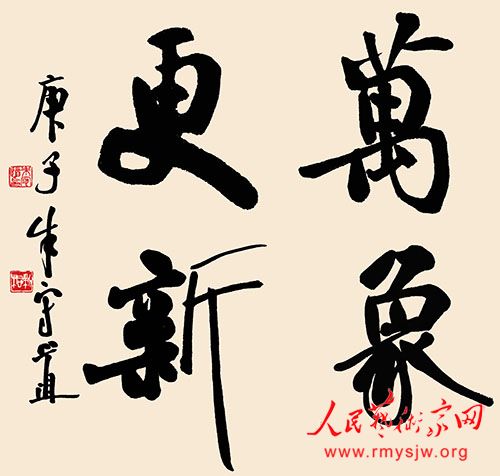 萬象
更新
庚子朱守道
人民藝術家网
www.rmysjw.org